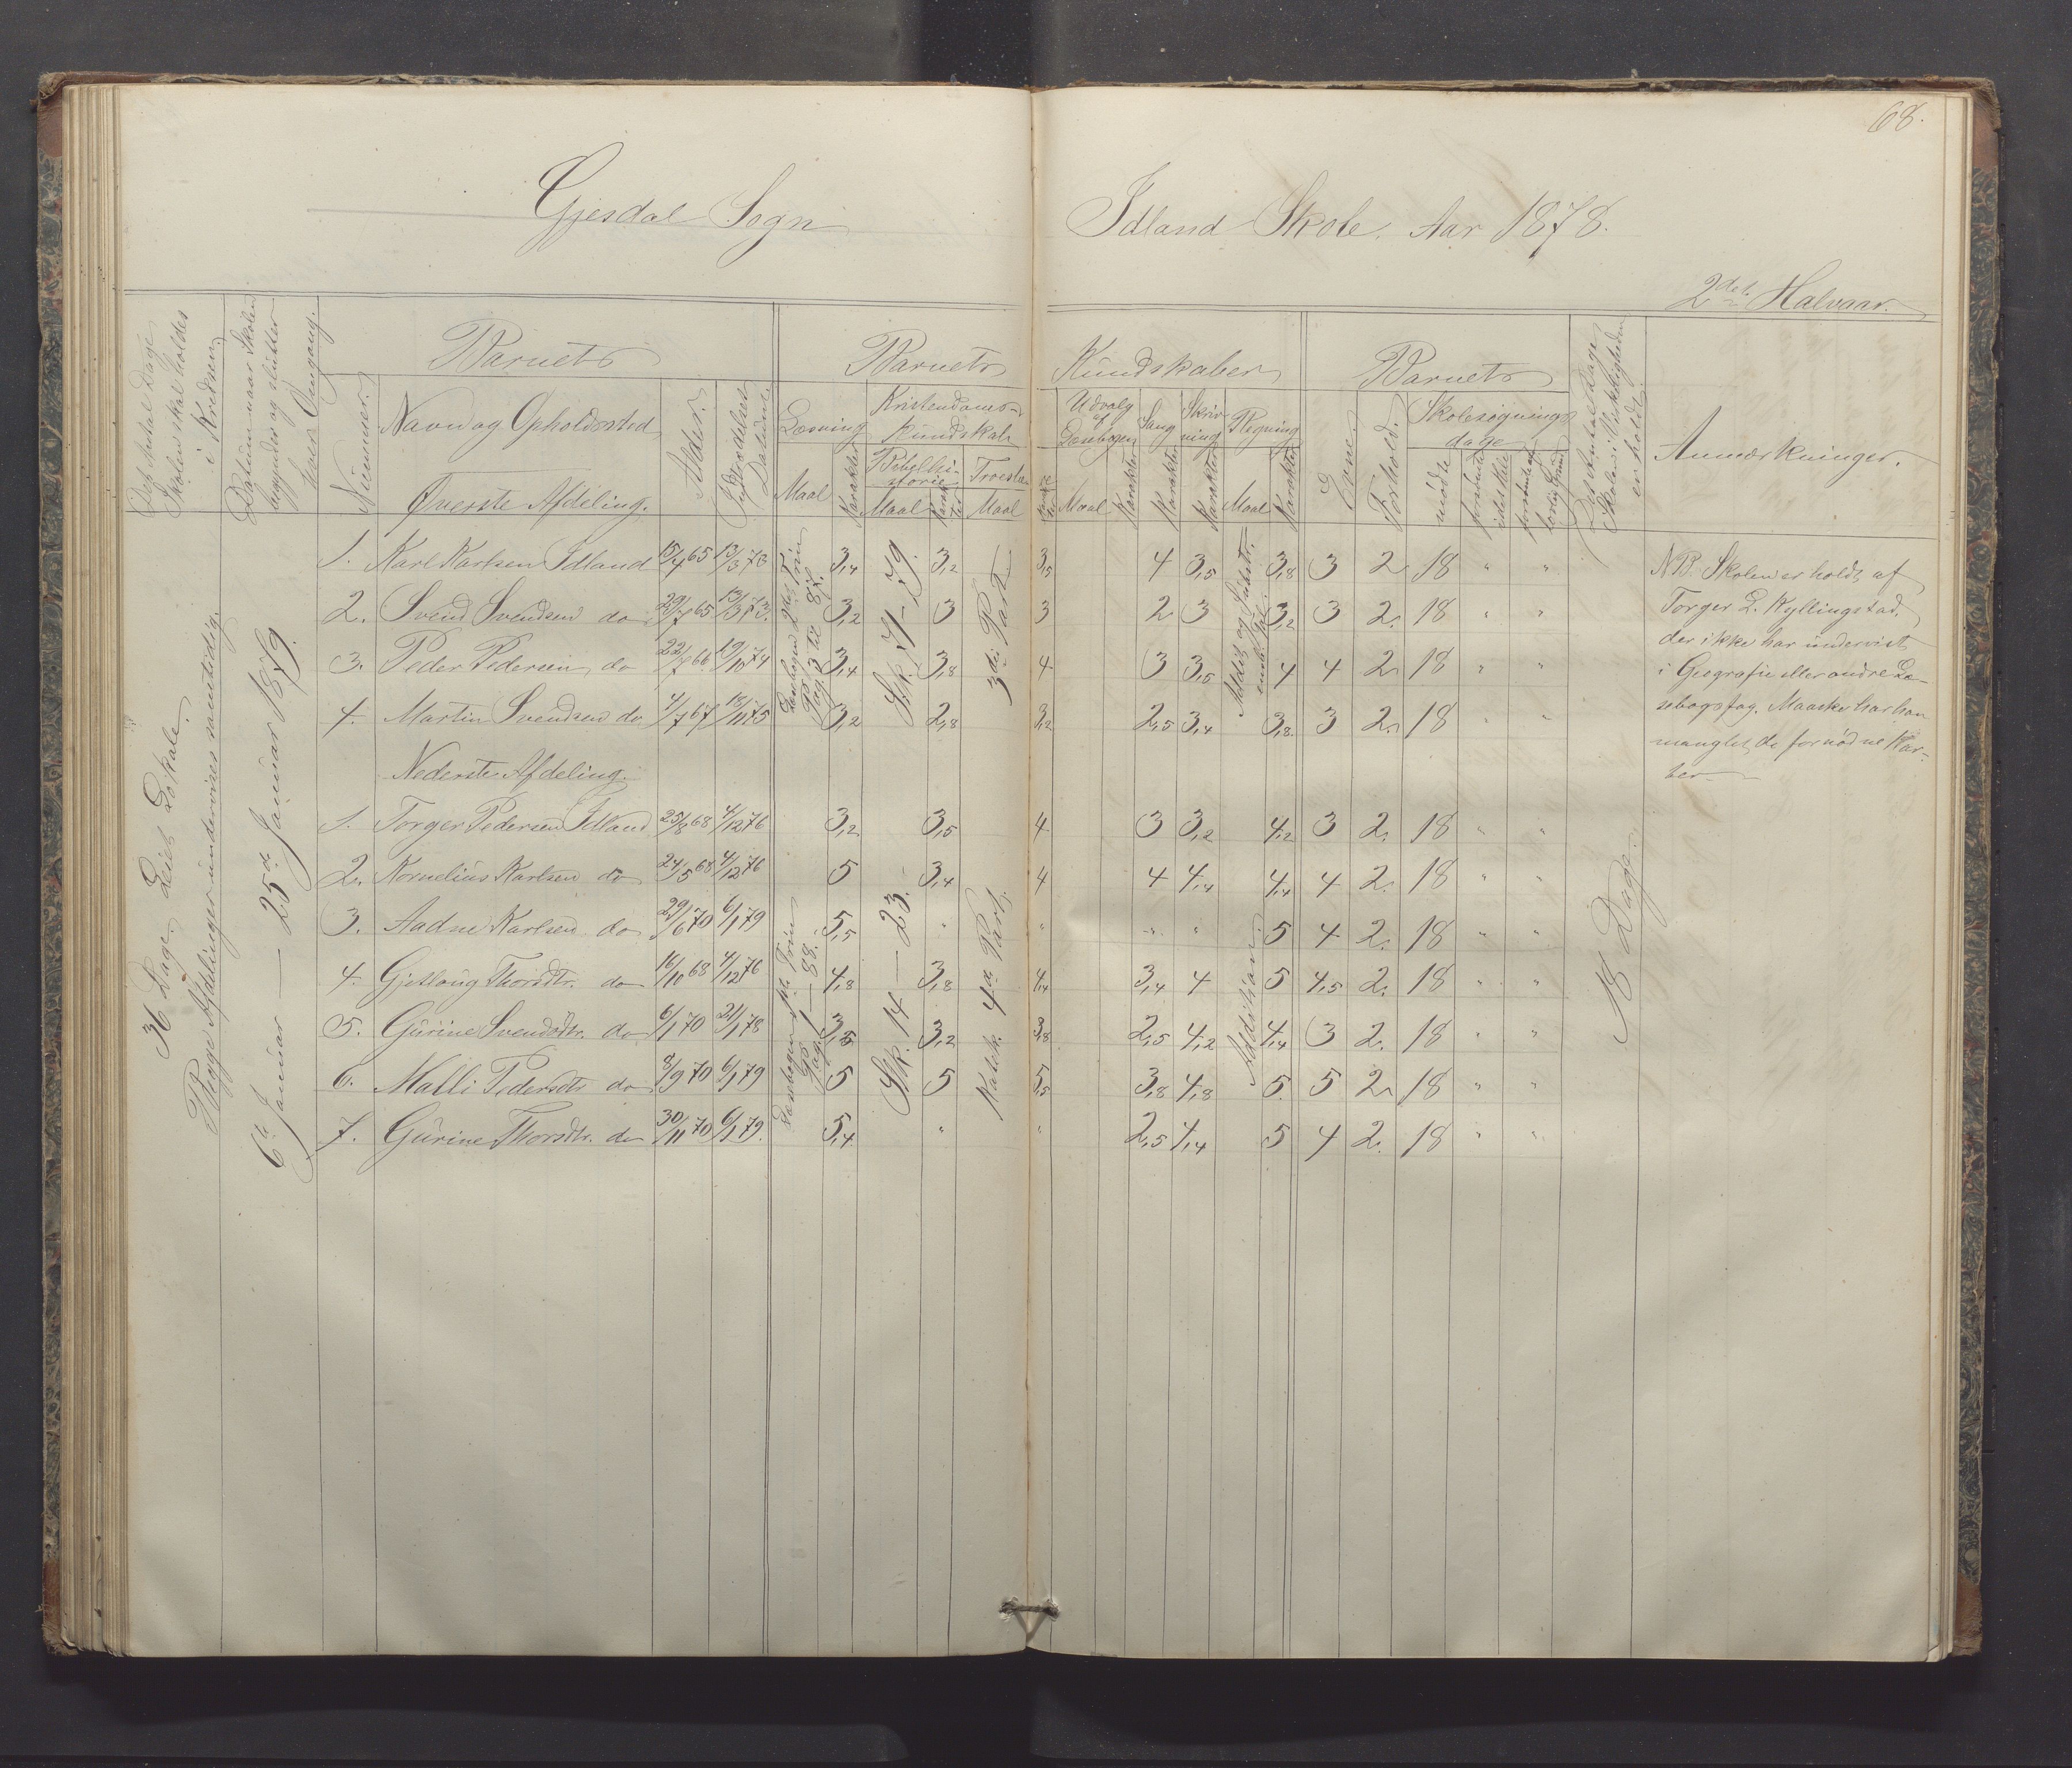 68.
Gjesdal Sogn
Idland Skole. Aar 1878.
2det Halvaar.
Det Antal Dage
Skolen skal holdes
i Kredsen.
Datum naar Skolen
begynder og slutter
hver Omgang.
Barnets
Nummer.
Navn og Opholdssted
Øverste Afdeling.
Alder.
Indtrædelses
Datum
Barnets
Kundskaber
Læsning
Kristendoms-
kundskab
Maal
Karakter
Bibelhi-
storie
Maal
Karak-
ter
Troeslære
Maal
Karak
ter
Udvalg
af
Læsebogen
Maal
Karakter
Sang
Karakter
Skriv-
ning
Karakter
Regning
Maal
Karakter
Barnets
Evne.
Forhold.
Skolesøgnings
dage
mødte
forsømte
Det Antal Dage
Skolen i Virkeligheden
er holdt.
Anmærkninger.
36 Dage Leiet Lokale.
Begge Afdelinger undervises samtidig.
6te Januar — 25de Januar 1879.
1. Karl Karlsen Idland 15/4 65 13/3 73 3,4 3,2 3,5 4 3,5 3,8 3 2 18 " "
2. Svend Svendsen do 29/7 65 13/3 73. 3,2 3 3 2 3 3,2 3 2. 18 " "
3. Peder Pedersen do 22/7 66 19/10 74 3,4 3,8 4 3 3,5 4 4 2 18 " "
4. Martin Svendsen do 4/7 67 18/11 75 3,2 2,8 3,2 2,5 3,4 3,8 3 2. 18 " "
Læsebogen 2det Trin
Pag. 3 til 87.
Stk. 71-79.
3die Part
Addit. og Subtr.
Nederste Afdeling.
1. Torger Pedersen Idland 25/8 68 4/12 76 3,2 3,5 4 3 3,2 4,2 3 2. 18 " "
2. Kornelius Karlsen do 24/5 68 4/12 76 5 3,4 4 4 4,4 4,4 4 2. 18 " "
3. Aadne Karlsen do 29/6 70 6/1 79 5,5 " " " " 5 4 2. 18 " "
4. Gjetlaug Thorsdtr. do 16/10 68 4/12 76 4,8 3,8 4,4 3,4 4 5 4,5 2. 18 " "
5. Gurine Svendsdtr. do 6/1 70 21/1 78 3,5 3,2 3,8 2,5 4,2 4,4 3 2. 18 " "
6. Malli Pedersdtr do 8/9 70 6/1 79 5 5 5,5 3,8 4,8 5. 5 2 18 " "
7. Gurine Thorsdtr. do 30/11 70 6/1 79. 5,4 " " 2,5 4,4 5 4 2. 18 " "
Læsebogen 1ste Trin
Pag. 1 — 88.
Stk. 14 — 23.
Katek. 4de Part.
Addition.
18 Dage.
NB. Skolen er holdt af
Torger L. Kyllingstad,
der ikke har undervist
i Geografie eller andre Læ-
sebogsfag. Maaske har han
manglet de fornødne Kar-
ter